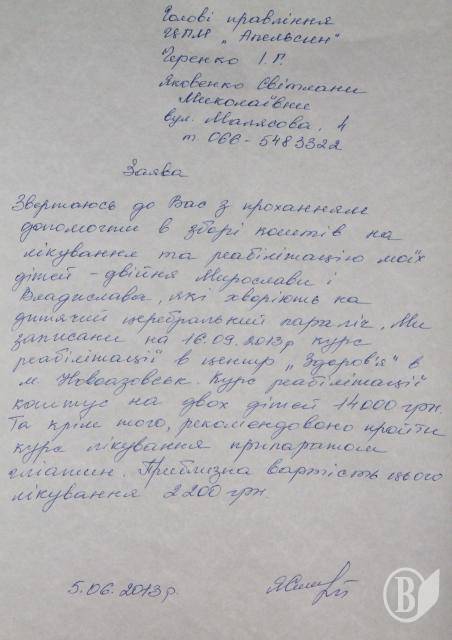 Голові правління
ЦПМ „Апельсин"
Черенко І.Г.
Яковенко Світлани
Миколаївни
вул. Малясова, 4
т. 066-5483322
Заява
Звертаюсь до Вас з проханням
допомогти в зборі коштів на
лікування та реабілітацію моїх
дітей - двійня Мирослави і
Владислава, які хворіють на
дитячий церебральний параліч. Ми
записани на 16.09.2013р курс
реабілітації в центр „Здоров'я" в
м. Новоазовськ. Курс реабілітації
коштує на двох дітей 14000 грн.
Та крім того, рекомендовано пройти
курс лікування припаратом
гліатин. Приблизна вартість цього
лікування 2200 грн.
5.06.2013р.
В